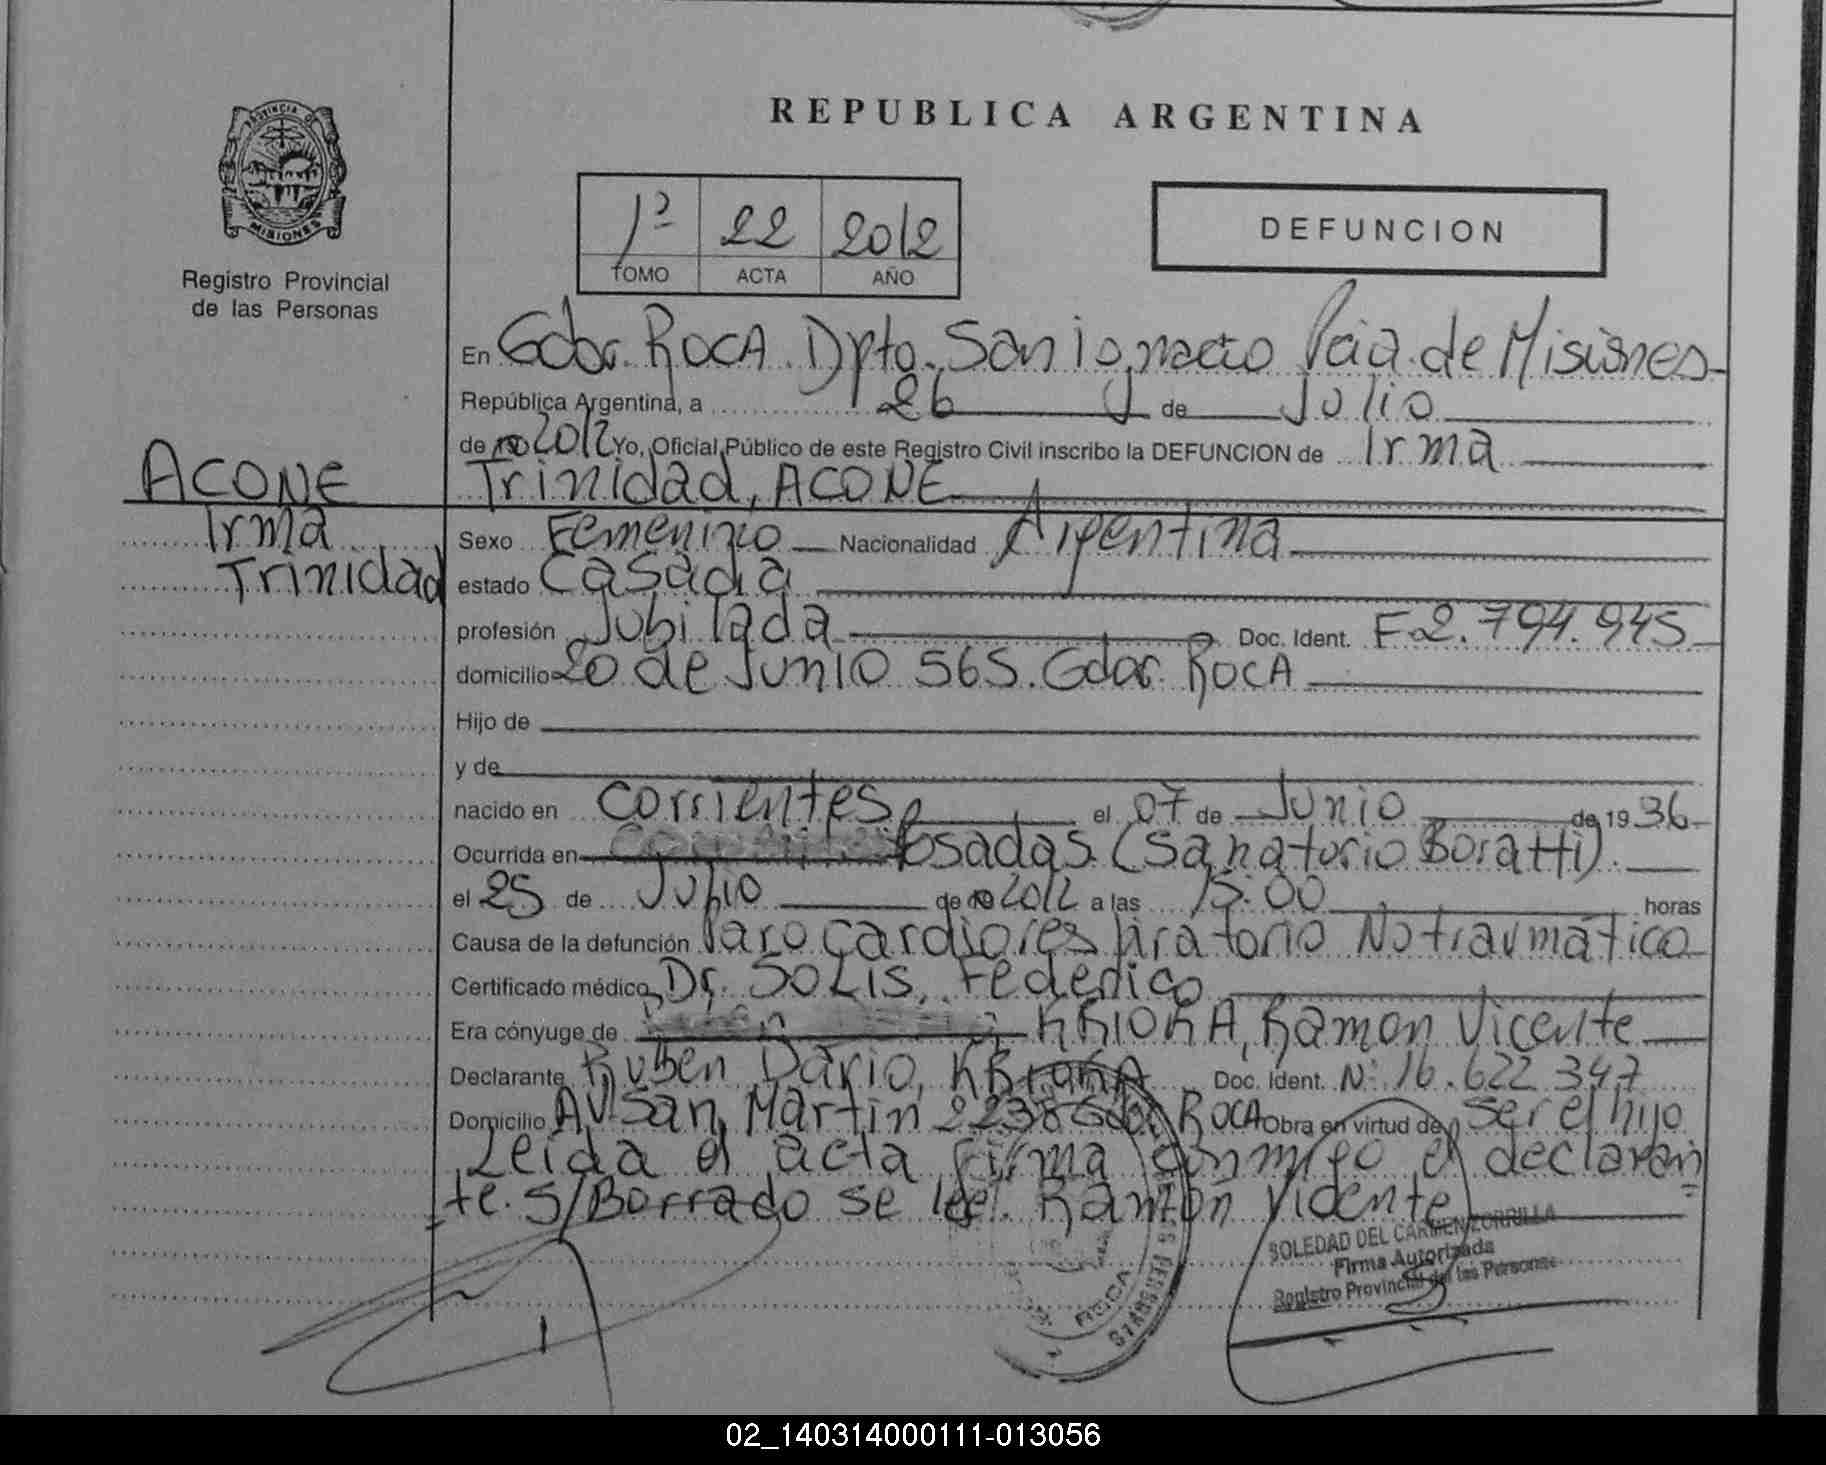 REPUBLICA ARGENTINA
PROVINCIA DE
MISIONES
Registro Provincial
de las Personas
1º 22 2012
TOMO ACTA AÑO
DEFUNCION
En Gdor. ROCA. Dpto. San Ignacio Pcia. de Misiones
República Argentina, a 26 de Julio
de 2012 Yo, Oficial Público de este Registro Civil inscribo la DEFUNCION de Irma
Trinidad, ACONE
ACONE
Irma
Trinidad
Sexo Femenino Nacionalidad Argentina
estado Casada
profesión Jubilada Doc. Ident. F 2.794.945
domicilio 20 de Junio 565. Gdor. ROCA
Hijo de
y de
nacido en Corrientes el 07 de Junio de 1936
Ocurrida en Posadas (Sanatorio Boratti).
el 25 de Julio de 2012 a las 15:00 horas
Causa de la defunción Paro Cardiorespiratorio No traumático
Certificado médico Dr. SOLIS, Federico
Era cónyuge de Ramon Vicente
Declarante Ruben Dario, Doc. Ident. Nº 16.622.347
Domicilio Av San Martin 2238 Gdor ROCA Obra en virtud de ser el hijo
Leida el acta firma conmigo el declaran
te. S/Borrado se lee: Ramon Vicente
SOLEDAD DEL CARMEN ZORRILLA
Firma Autorizada
Registro Provincial de las Personas
02_140314000111-013056